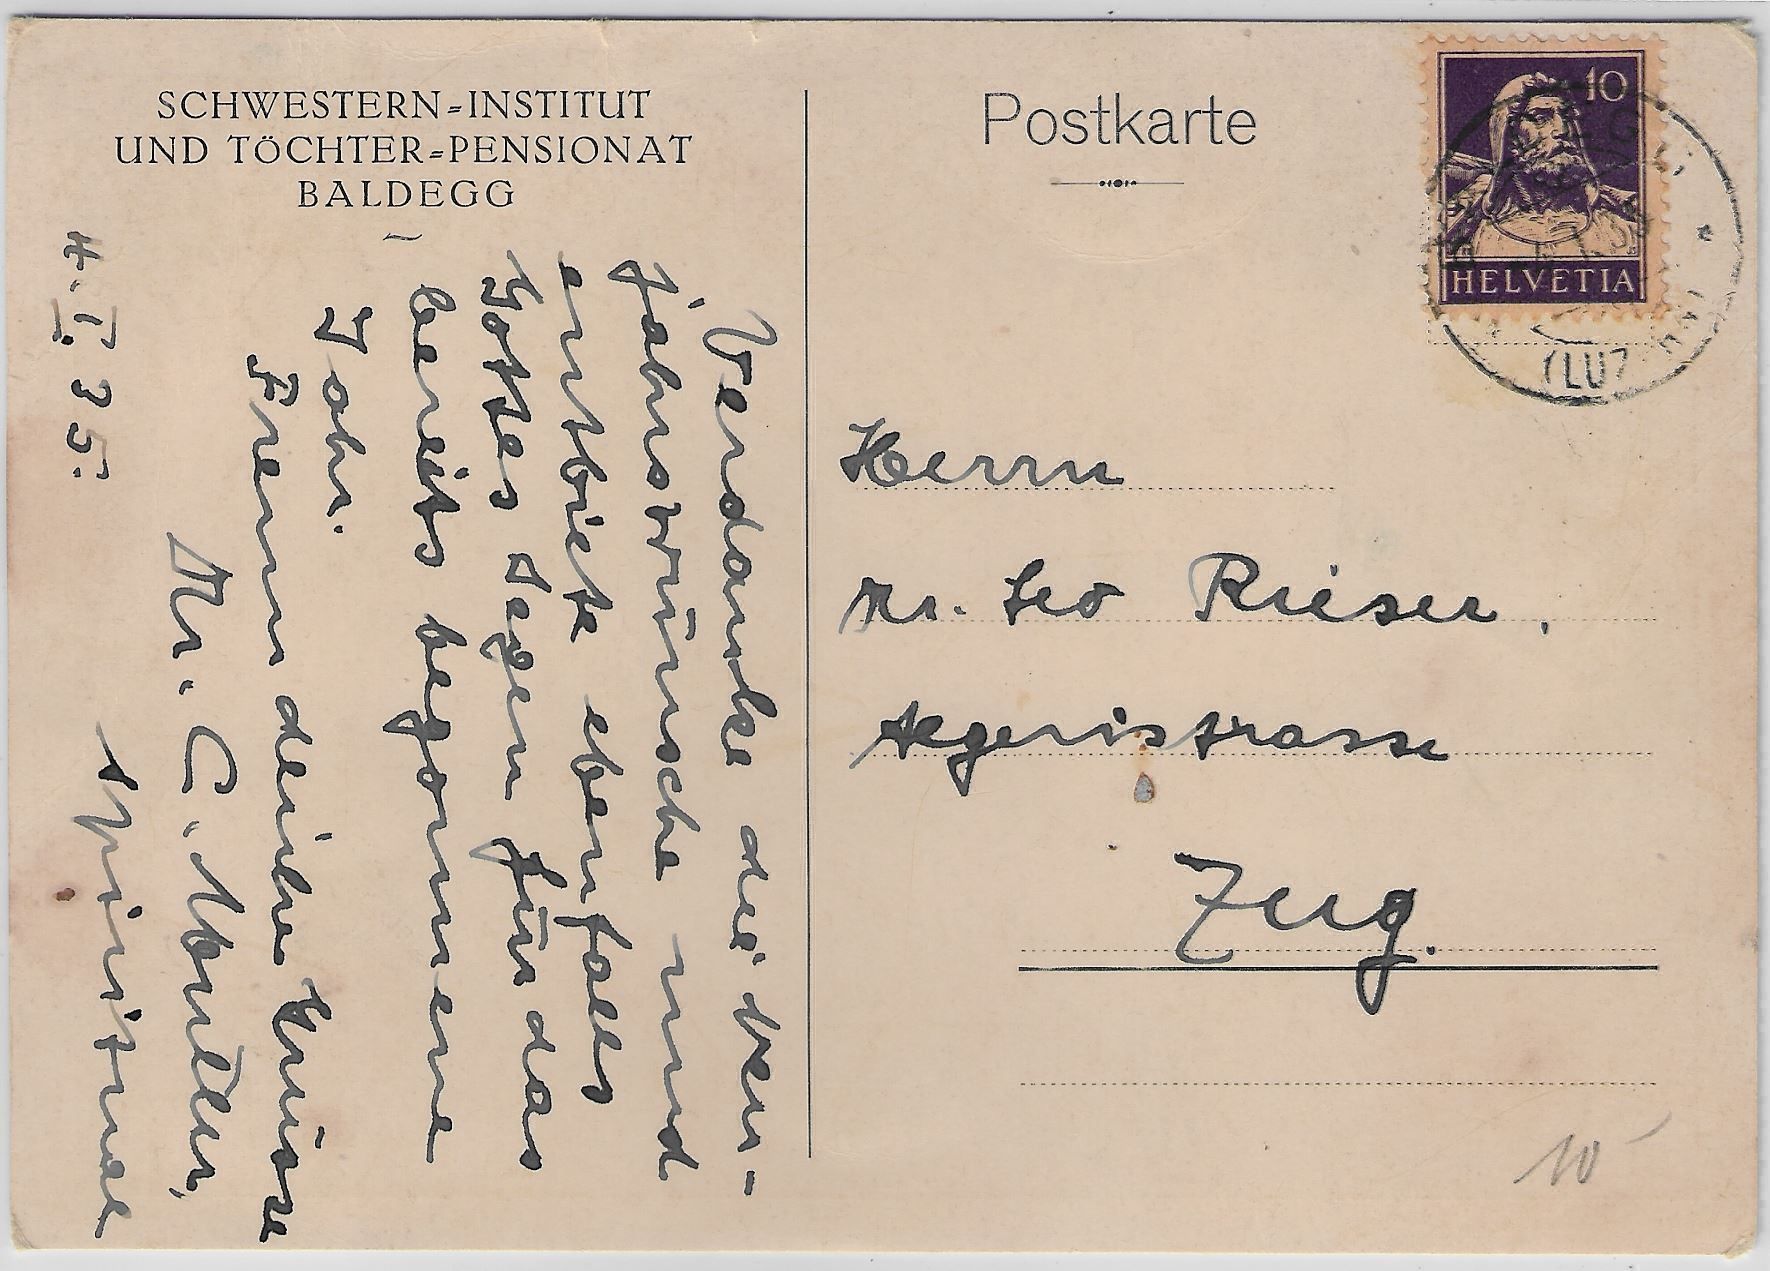 SCHWESTERN=INSTITUT
UND TÖCHTER=PENSIONAT
BALDEGG
Verdanke die Neu-
jahrswünsche und
entbiete ebenfalls
Gottes Segen für das
bereits begonnene
Jahr.
Freundliche Grüsse
Dr. C. Müller,
Spiritual
4. I. 35.
Postkarte
10
HELVETIA
(LUZ
Herrn
Dr. Leo Rieser,
Aegeristrasse
Zug.
10